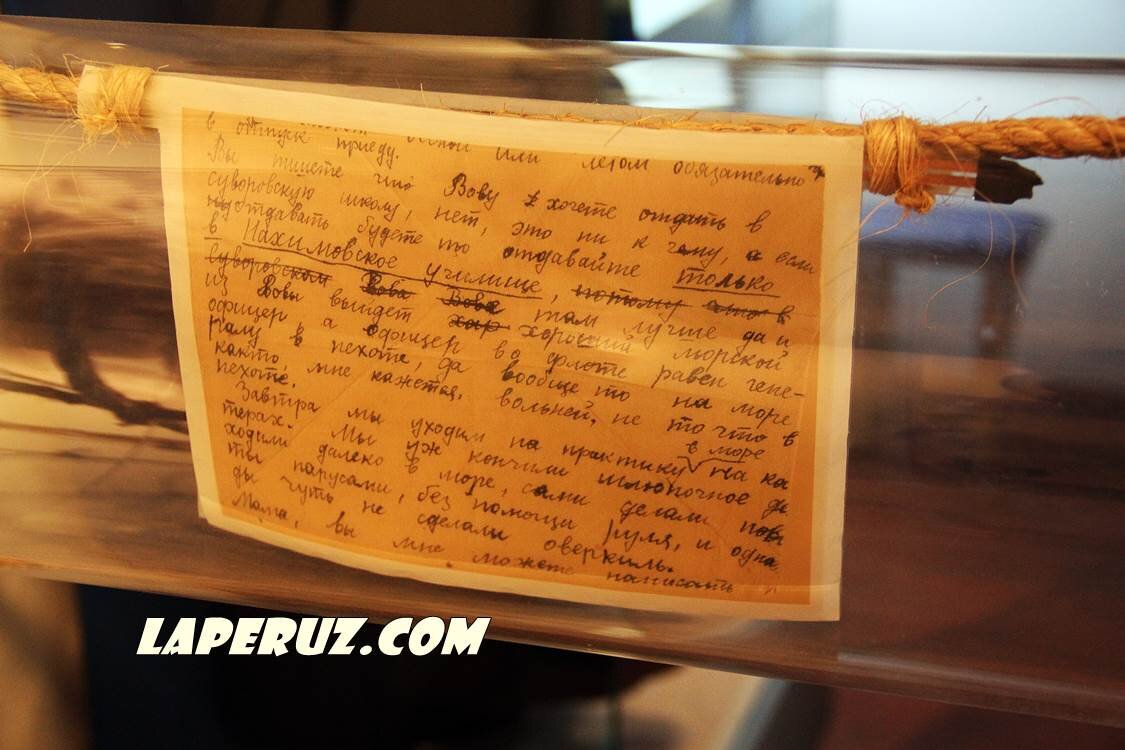 весной или летом обязательно
в отпуск приеду.
Вы пишете что Вову хочете отдать в
суворовскую школу, нет, это ни к чему, а если
отдавать будете то отдавайте только
в Нахимовское училище, потому что в
Суворовском Вова Вова там лучше да и
из Вовы выйдет хор хороший морской
офицер а офицер во флоте равен гене-
ралу в пехоте, да вообще то на море
както, мне кажется, вольней, не то что в
пехоте.
Завтра мы уходим на практику в море на ка
терах. Мы уж кончили шлюпочное де
ходили далеко в море, сами делали пов
ты парусами, без помощи руля, и одна
ды чуть не сделали оверкиль.
Мама, вы мне можете написать
LAPERUZ.COM